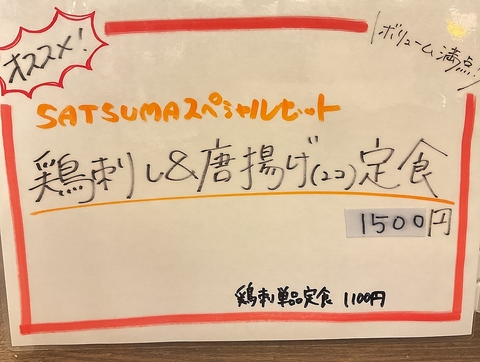 オススメ!
ボリューム満点!
SATSUMAスペシャルセット
鶏刺し&唐揚げ(2コ)定食
1500円
鶏刺単品定食 1100円